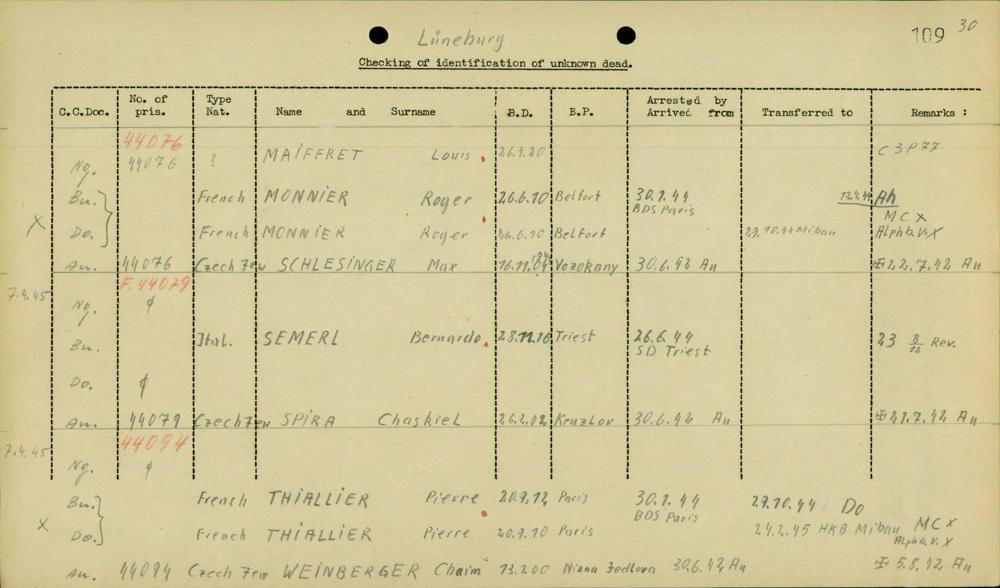 Lüneburg
109 30
Checking of identification of unknown dead.
C.C.Doc. No. of pris. Type Nat. Name and Surname B.D. B.P. Arrested by Arrived from Transferred to Remarks :
44076
Ng. 44076 ? MAIFFRET Louis 26.4.20 C3P77
Bu. French MONNIER Roger 26.6.10 Belfort 30.1.44 BDS Paris Ah
X Do. French MONNIER Roger 26.6.10 Belfort 29.10.44 Mibau MCX Alphb. V. X
Au. 44076 Czech Jew SCHLESINGER Max 16.11.04 Vozokany 30.6.42 Au 22.7.42 Au
F. 44079
7.4.45
Ng. ø
Bu. Ital. SEMERL Bernardo 28.11.10 Triest 26.6.44 SD Triest 23 8/12 Rev.
Do. ø
Au. 44079 Czech Jew SPIRA Chaskiel 26.2.02 Kruzlov 30.6.42 Au 21.7.42 Au
44094
7.4.45
Ng. ø
Bu. French THIALLIER Pierre 20.9.12 Paris 30.1.44 BDS Paris 29.10.44 Do
X Do. French THIALLIER Pierre 20.9.10 Paris 24.2.45 HKB Mibau MCX Alphb. V. X
Au. 44094 Czech Jew WEINBERGER Chaim 13.2.00 Nizna Jedlova 30.6.42 Au 5.8.42 Au